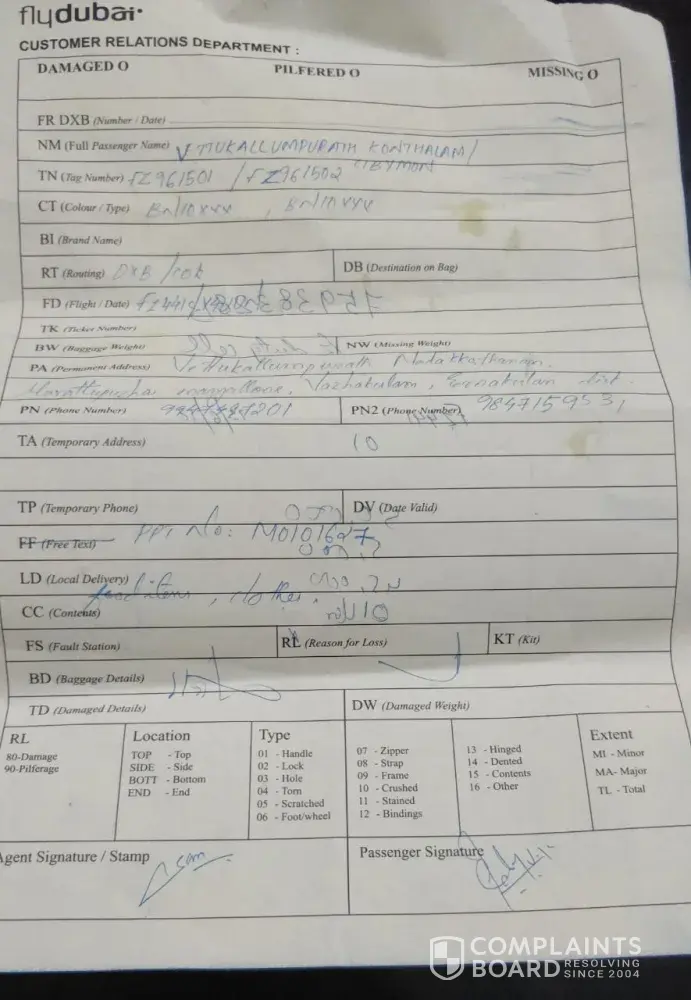 flydubai
CUSTOMER RELATIONS DEPARTMENT :
DAMAGED O PILFERED O MISSING O
FR DXB (Number / Date)
NM (Full Passenger Name) KONTHALAM/
TN (Tag Number) FZ961501 / FZ961502
CT (Colour / Type) BN/10XXX , BN/10XXX
BI (Brand Name)
RT (Routing) DXB /COK
DB (Destination on Bag)
FD (Flight / Date)
TK (Ticker Number)
BW (Baggage Weight)
NW (Missing Weight)
PA (Permanent Address)
Vazhakulam, Ernakulam dist.
PN (Phone Number)
PN2 (Phone Number)
TA (Temporary Address) 10
TP (Temporary Phone)
DV (Date Valid)
FF (Free Text) PPT No: M0101627
LD (Local Delivery)
food items, clothes.
CC (Contents)
FS (Fault Station)
RL (Reason for Loss)
KT (Kit)
BD (Baggage Details)
TD (Damaged Details)
DW (Damaged Weight)
RL
80-Damage
90-Pilferage
Location
TOP - Top
SIDE - Side
BOTT - Bottom
END - End
Type
01 - Handle
02 - Lock
03 - Hole
04 - Torn
05 - Scratched
06 - Foot/wheel
07 - Zipper
08 - Strap
09 - Frame
10 - Crushed
11 - Stained
12 - Bindings
13 - Hinged
14 - Dented
15 - Contents
16 - Other
Extent
MI - Minor
MA- Major
TL - Total
Agent Signature / Stamp
Passenger Signature
COMPLAINTS
BOARD RESOLVING
SINCE 2004